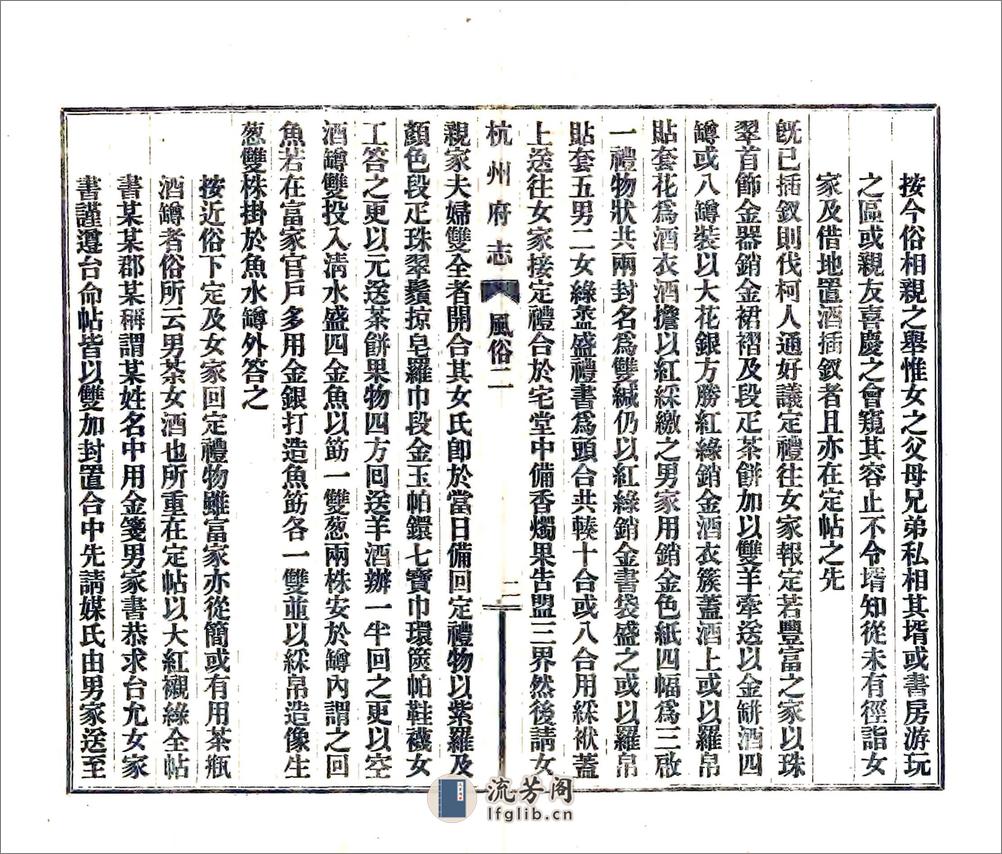 按今俗相親之舉惟女之父母兄弟私相其壻或書房游玩
之區或親友喜慶之會窺其容止不令壻知從未有徑詣女
家及借地置酒插釵者且亦在定帖之先
旣已插釵則伐柯人通好議定禮往女家報定若豐富之家以珠
翠首飾金器銷金裙褶及段疋茶餅加以雙羊牽送以金缾酒四
罇或八罇裝以大花銀方勝紅綠銷金酒衣簇蓋酒上或以羅帛
貼套花爲酒衣酒擔以紅綵繳之男家用銷金色紙四幅爲三啟
一禮物狀共兩封名爲雙緘仍以紅綠銷金書袋盛之或以羅帛
貼套五男二女綠盝盛禮書爲頭合共輳十合或八合用綵袱蓋
上送往女家接定禮合於宅堂中備香燭果告盟三界然後請女
杭州府志 風俗二 二
親家夫婦雙全者開合其女氏卽於當日備回定禮物以紫羅及
顏色段疋珠翠鬚掠皂羅巾段金玉帕鐶七寶巾環篋帕鞋襪女
工答之更以元送茶餅果物四方回送羊酒辦一半回之更以空
酒罇雙投入淸水盛四金魚以筯一雙葱兩株安於罇內謂之回
魚若在富家官戶多用金銀打造魚筯各一雙並以綵帛造像生
葱雙株掛於魚水罇外答之
按近俗下定及女家回定禮物雖富家亦從簡或有用茶瓶
酒罇者俗所云男茶女酒也所重在定帖以大紅襯綠全帖
書某某郡某稱謂某姓名中用金箋男家書恭求台允女家
書謹遵台命帖皆以雙加封置合中先請媒氏由男家送至
流芳阁
lfglib.cn